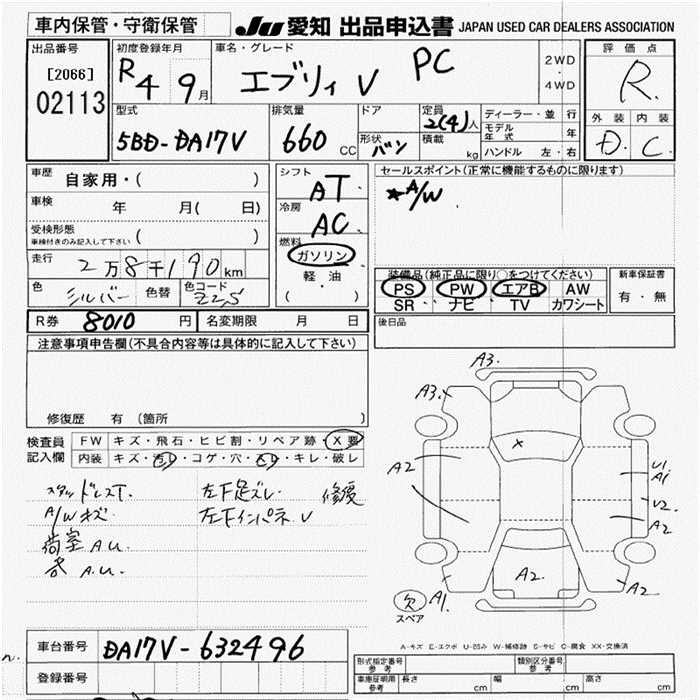 車内保管・守衛保管
JU 愛知 出品申込書 JAPAN USED CAR DEALERS ASSOCIATION
出品番号
[2066]
02113
初度登録年月
R4 9月
車名・グレード
エブリィV PC
2WD
・
4WD
評価点
R.
外装 内装
D. C.
型式
5BD-DA17V
排気量
660 CC
ドア
形状
バン
定員
2(4)人
積載
kg
ディーラー・並 行
モデル年式 年
ハンドル 左・右
車歴
自家用・( )
車検 年 月( 日)
受検形態
車検付きのみ記入して下さい ( )
走行
2万8千190km
色 シルバー 色替 色コード Z2S
シフト
AT
冷房
AC
燃料
ガソリン
軽・油
( )
セールスポイント(正常に機能するものに限ります)
★A/W
装備品(純正品に限り○をつけてください)
PS PW エアB AW
SR ナビ TV カワシート
新車保証書
有・無
後日品
R券 8010 円 名変期限 月 日
注意事項申告欄(不具合内容等は具体的に記入して下さい)
修復歴 有 (箇所 )
検査員
記入欄
FW キズ・飛石・ヒビ割・リペア跡・X要
内装 キズ・汚レ・コゲ・穴・スレ・キレ・破レ
スタッドレスT. 左下足ズレ 修復
A/Wキズ 左下インパネV
荷室A.U.
A.U.
A3.
A3.
A2
A2.
A1.
A2
U1
A1
U2.
A2
欠
スペア
A-キズ E-エクボ U-凹み W-補修跡 S-サビ C-腐食 XX-交換済
車台番号 DA17V-632496
登録番号
形式指定番号 参考
類別区分番号 参考
車庫証明用 参考 長さ cm 幅 cm 高さ cm